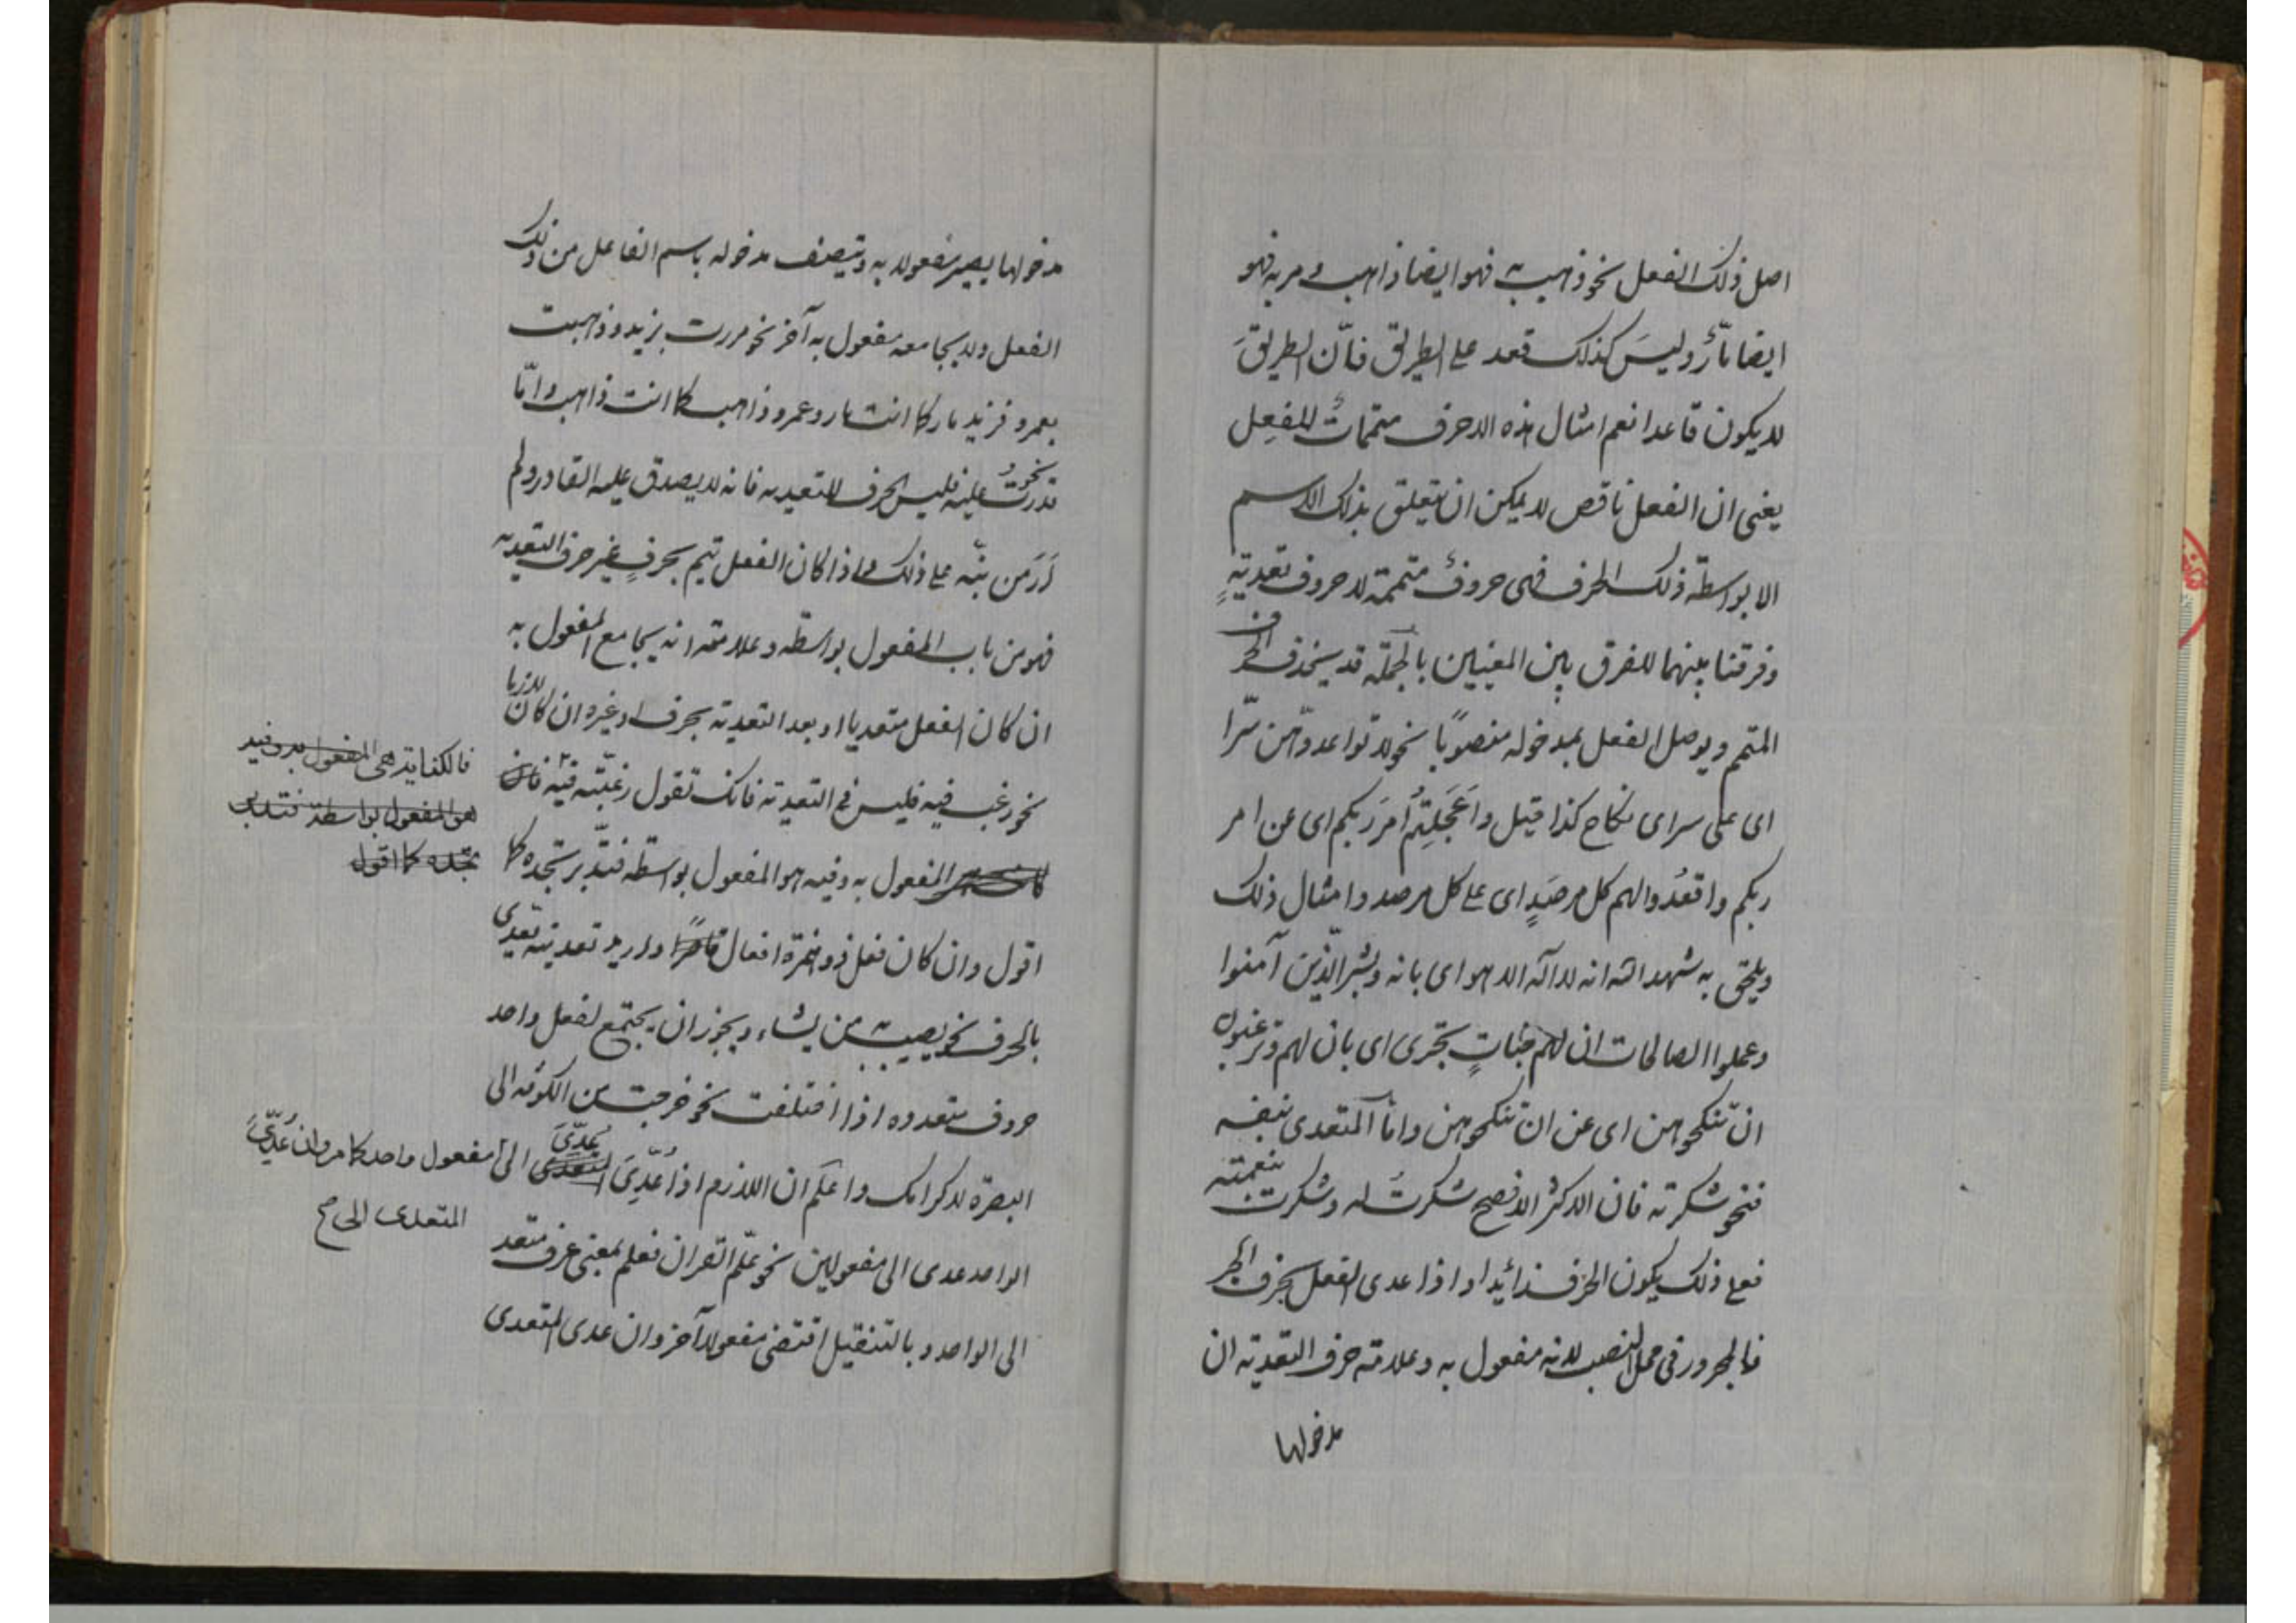 اصل ذلك الفعل نحو ذهب به فهو ايضا ذاهب و مر به فهو
ايضا مارّ و ليسَ كذلك قعد على الطريق فانّ الطريقَ
لا يكون قاعدا نعم امثال هذه الاحرف متممات للفعِل
يعنى ان الفعل ناقص لا يمكن ان يتعلق بذلك الاسم
الا بواسطة ذلك الحرف فهى حروف متممة لا حروف تعديةٍ
و فرقنا بينهما للفرق بين المعنيين بالجملة قد يحذف الحرف
المتمم و يوصل الفعل بمدخوله منصوبًا نحو لا تواعدوهن سرّا
اى على سر اى نكاح كذا قيل و اَعَجَلِتُم اَمرَ ربكم اى عن امر
ربكم و اقعدُوا لهم كل مرصَدٍ اى على كل مرصد و امثال ذلك
و يلحق به شهد الله انه لا اله الا هو اى بانه و بشّر الّذين آمنوا
و عملوا الصالحات ان لهم جنّاتٍ تجرى اى بان لهم و ترغبون
ان تنكحوهن اى عن ان تنكحوهن و اما المتعدى بنفسه
فنحو شكرته فان الاكثر الافصح شكرتُ له و شكرت بنعمته
فعلى ذلك يكون الحرف زائدا و اذا عدى الفعل بحرف الجر
فالمجرور فى محل النصب لانه مفعول به و علامة حرف التعدية ان
مدخولها
مدخولها يصير مفعولا به و يتصف مدخوله باسم الفاعل من ذلك
الفعل و لا يجامعه مفعول به آخر نحو مررت بزيد و ذهبت
بعمرو فزيد مار كما انت مار و عمرو ذاهب كما انت ذاهب و امّا
نحو قدرتُ عليه فليس الحرف للتعدية فانه لا يصدق عليه القادر و لم
اَرَ مَن نبّه على ذلك و اذا كان الفعل يتم بحرفٍ غير حرف التعدية
فهو من باب المفعول بواسطة و علامته انه يجامع المفعول به
ان كان الفعل متعديا او بعد التعدية بحرف او غيره ان كان لازما
نحو رغب فيه فليس فى للتعدية فانك تقول رغبّته فيه فان
المفعول به و فيه هو المفعول بواسطة فتدبّر تجده كما
اقول و ان كان فعل ذو همزة افعال قاصرًا و اريد تعديته تعدى
بالحرف نحو يصيب به من يشاء و يجوز ان يجتمع لفعل واحد
حروف متعدده اذا اختلفت نحو خرجت من الكوفه الى
البصرة لاكرامك و اعلم ان اللازم اذا عُدِّىَ يُعدّىَ الى مفعول واحد كما مر و ان عُدّىَ
المتعدى الى صح
الواحد عدى الى مفعولين نحو علّم القران فعلم بمعنى عرف متعد
الى الواحد و بالتثقيل اقتضى مفعولا آخر و ان عدى المتعدى
فالكفاية هى المفعول به و فيه
هو المفعول بواسطة فتدبر
تجده كما اقول